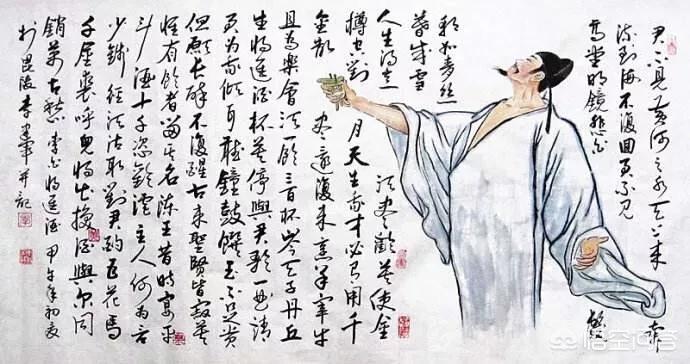 君不见黄河之水天上来奔
流到海不復回君不见
高堂明镜悲白髮
朝如青丝
暮成雪
人生得意须尽歡莫使金
樽空對月天生我才必有用千
金散尽還復来烹羊宰牛
且為樂會须一飲三百杯岑夫子丹丘
生将進酒杯莫停與君歌一曲請
君为我傾耳聽鐘鼓饌玉不足贵
但願长醉不復醒古来聖賢皆寂莫
惟有飲者留其名陈王昔時宴平
斗酒十千恣歡謔主人何为言
少錢径须沽取對君酌五花馬
千金裘呼兒将出換酒與尔同
銷萬古愁 李白将進酒 甲午年初夏
於毘陵李華并記
悟空问答